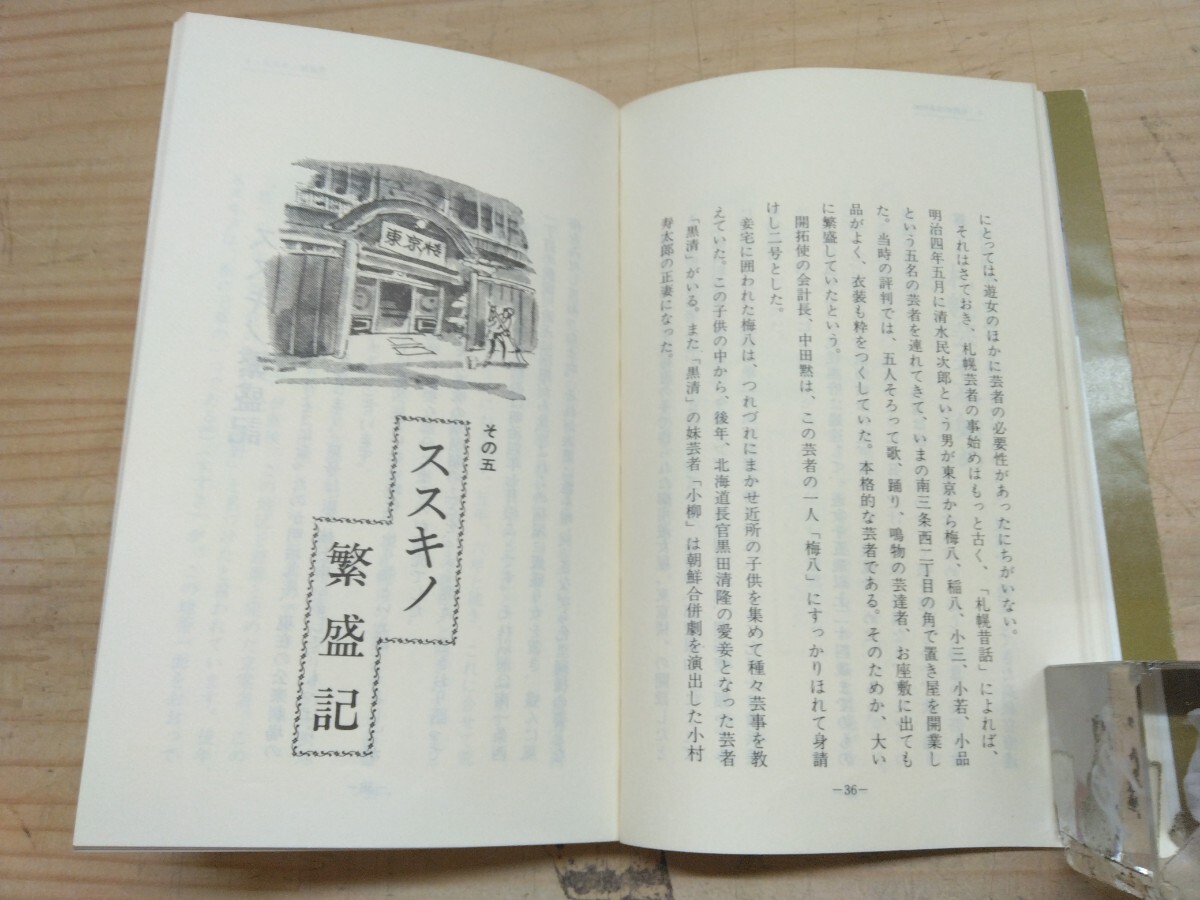 にとっては、遊女のほかに芸者の必要性があったにちがいない。
それはさておき、札幌芸者の事始めはもっと古く、「札幌昔話」によれば、
明治四年五月に清水民次郎という男が東京から梅八、稲八、小三、小若、小品
という五名の芸者を連れてきて、いまの南三条西二丁目の角で置き屋を開業し
た。当時の評判では、五人そろって歌、踊り、鳴物の芸達者、お座敷に出ても
品がよく、衣装も粋をつくしていた。本格的な芸者である。そのためか、大い
に繁盛していたという。
開拓使の会計長、中田黙は、この芸者の一人「梅八」にすっかりほれて身請
けし二号とした。
妾宅に囲われた梅八は、つれづれにまかせ近所の子供を集めて種々芸事を教
えていた。この子供の中から、後年、北海道長官黒田清隆の愛妾となった芸者
「黒清」がいる。また「黒清」の妹芸者「小柳」は朝鮮合併劇を演出した小村
寿太郎の正妻になった。
—36—
東京楼
その五
ススキノ
繁盛記